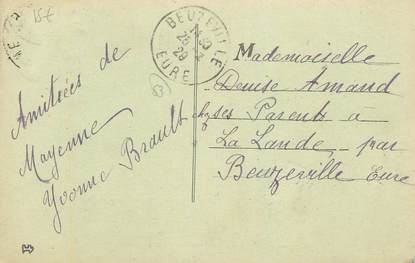 15€
BEUZEVILLE
EURE
Amitiées de
Mayenne
Yvonne Brault
Mademoiselle
Denise Amand
chz ses Parents à
La Lande par
Beuzeville Eure